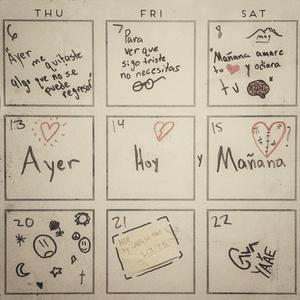 THU FRI SAT
6
"Ayer
me quitaste
algo que no se
puede
regresar"
7
Para
ver que
sigo triste
no necesitas
8
"Mañana amare
tu y odiara
tu
13
Ayer
14
Hoy
y
15
Mañana
?
20
21
22